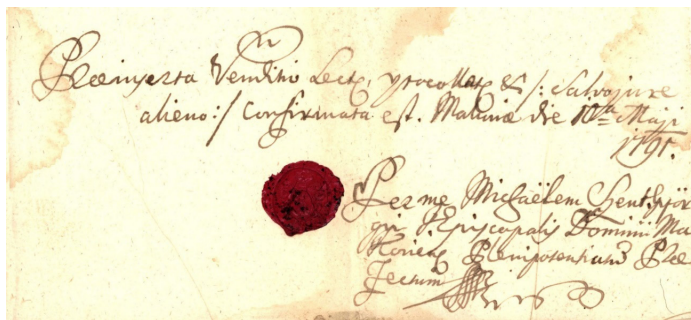 Præinserta Venditio Lecta, protocollata & /: Salvo jure
alieno :/ Confirmata est. Malvinæ die 10ma Maji
1795.
Per me Michaëlem Sent
Episcopalis Dominii
Plenipotentiarium Præ
fectum